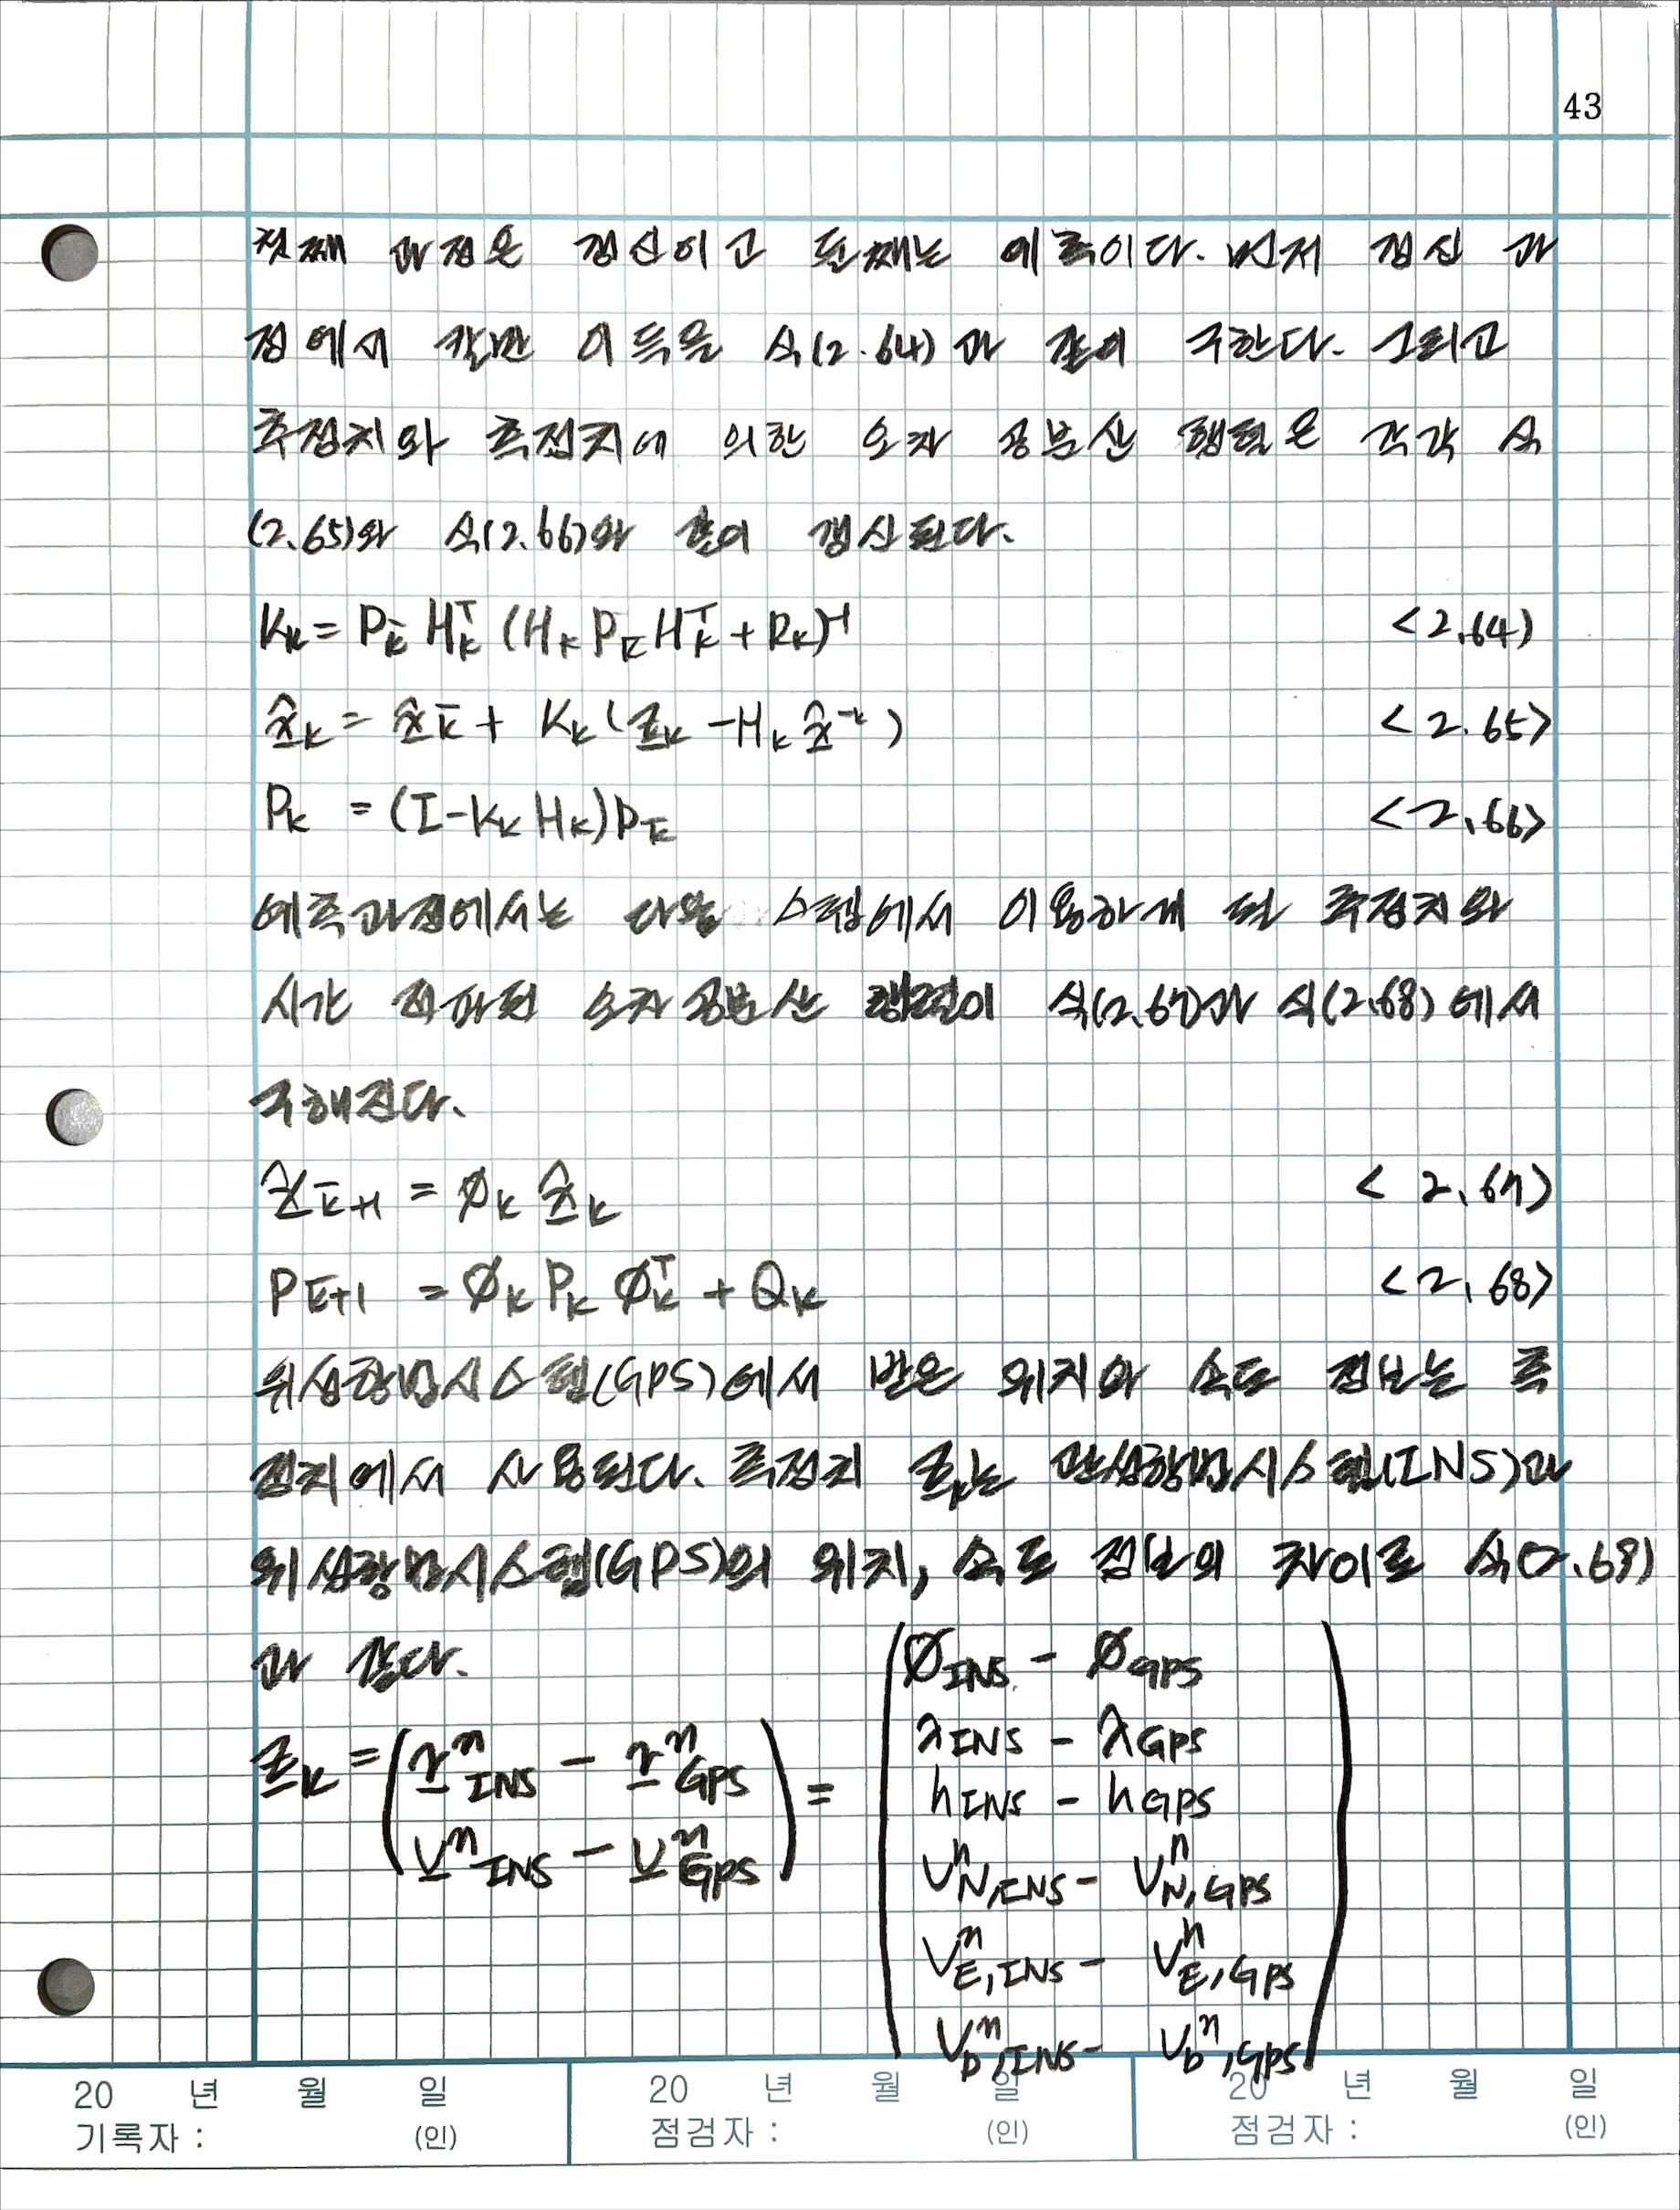 43
첫째 과정은 갱신이고 둘째는 예측이다. 먼저 갱신 과
정에서 칼만 이득을 식(2.64)과 같이 구한다. 그리고
추정치와 측정치에 의한 오차 공분산 행렬은 각각 식
(2.65)와 식(2.66)와 같이 갱신된다.
K_k = P_k^- H_k^T (H_k P_k^- H_k^T + R_k)^-1 <2.64)
x̂_k = x̂_k^- + K_k (z_k - H_k x̂^-k) <2.65>
P_k = (I - K_k H_k) P_k^- <2.66>
예측과정에서는 다음 스텝에서 이용하게 될 추정치와
시간 전파된 오차공분산 행렬이 식(2.67)과 식(2.68)에서
구해진다.
x̂_k^-+1 = Ø_k x̂_k <2.67)
P_k^-+1 = Ø_k P_k Ø_k^T + Q_k <2.68>
위성항법시스템(GPS)에서 받은 위치와 속도 정보는 측
정치에서 사용된다. 측정치 z_k는 관성항법시스템(INS)과
위성항법시스템(GPS)의 위치, 속도 정보의 차이로 식(2.69)
과 같다.
z_k = (r^n_INS - r^n_GPS
v^n_INS - v^n_GPS) =
(Ø_INS - Ø_GPS
λ_INS - λ_GPS
h_INS - h_GPS
V^n_N,INS - V^n_N,GPS
V^n_E,INS - V^n_E,GPS
V^n_D,INS - V^n_D,GPS)
20 년 월 일 20 년 월 일 20 년 월 일
기록자 : (인) 점검자 : (인) 점검자 : (인)